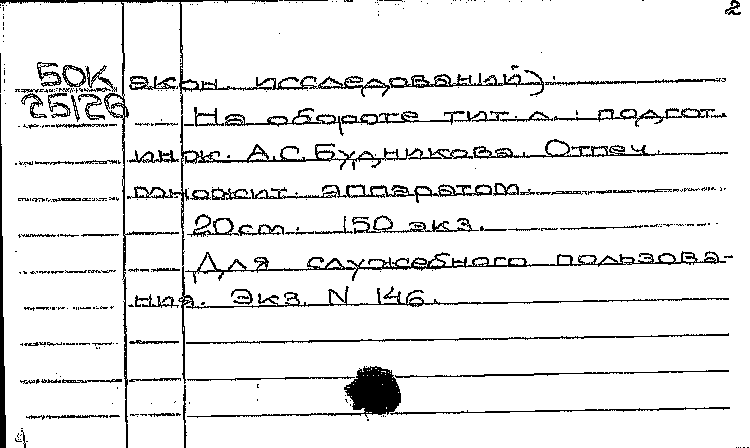 2
50К экон. исследований).
25126 На обороте тит. л. : подгот.
инж. А.С. Будникова. Отпеч.
множит. аппаратом.
20см. 150 экз.
Для служебного пользова-
ния. Экз. N 146.